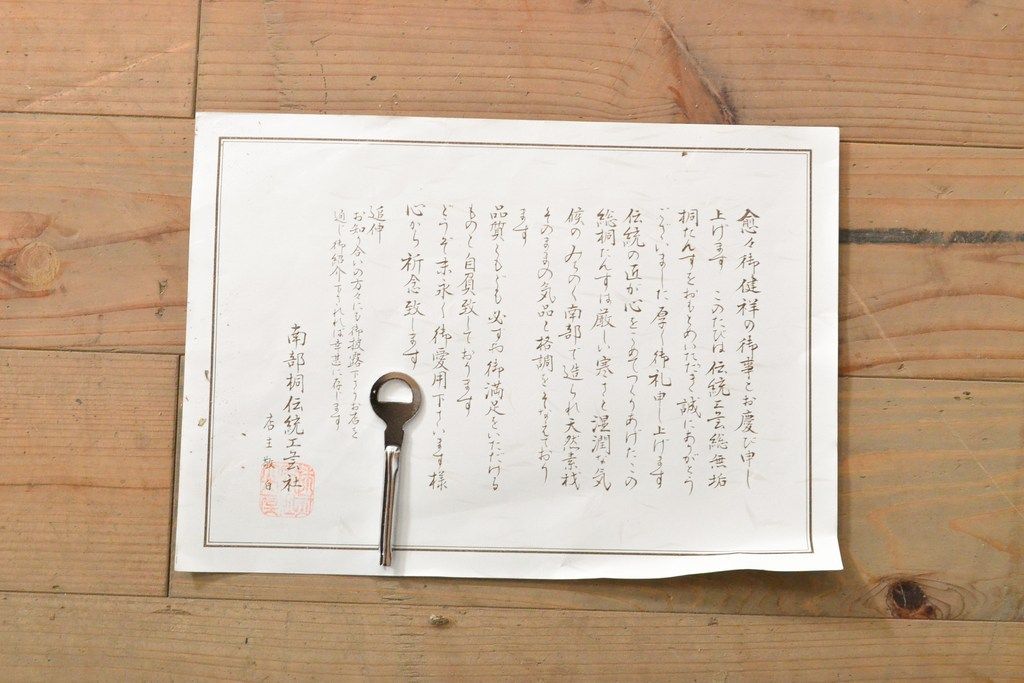 愈々御健祥の御事とお慶び申し
上げます　このたびは伝統工芸総無垢
桐たんすをおもとめいただき誠にありがとう
ございました厚く御礼申し上げます
伝統の匠が心をこめてつくりあげたこの
総桐たんすは厳しい寒さと湿潤な気
候のみちのく南部で造られ天然素材
そのままの気品と格調をそなえており
ます
品質ともども必ずお御満足をいただける
ものと自負致しております
どうぞ末永く御愛用下さいます様
心から祈念致します
追伸
お知り合いの方々にも御披露下さりお店を
通じ御紹介下されれば幸甚に存じます
南部桐伝統工芸社
店主　敬白